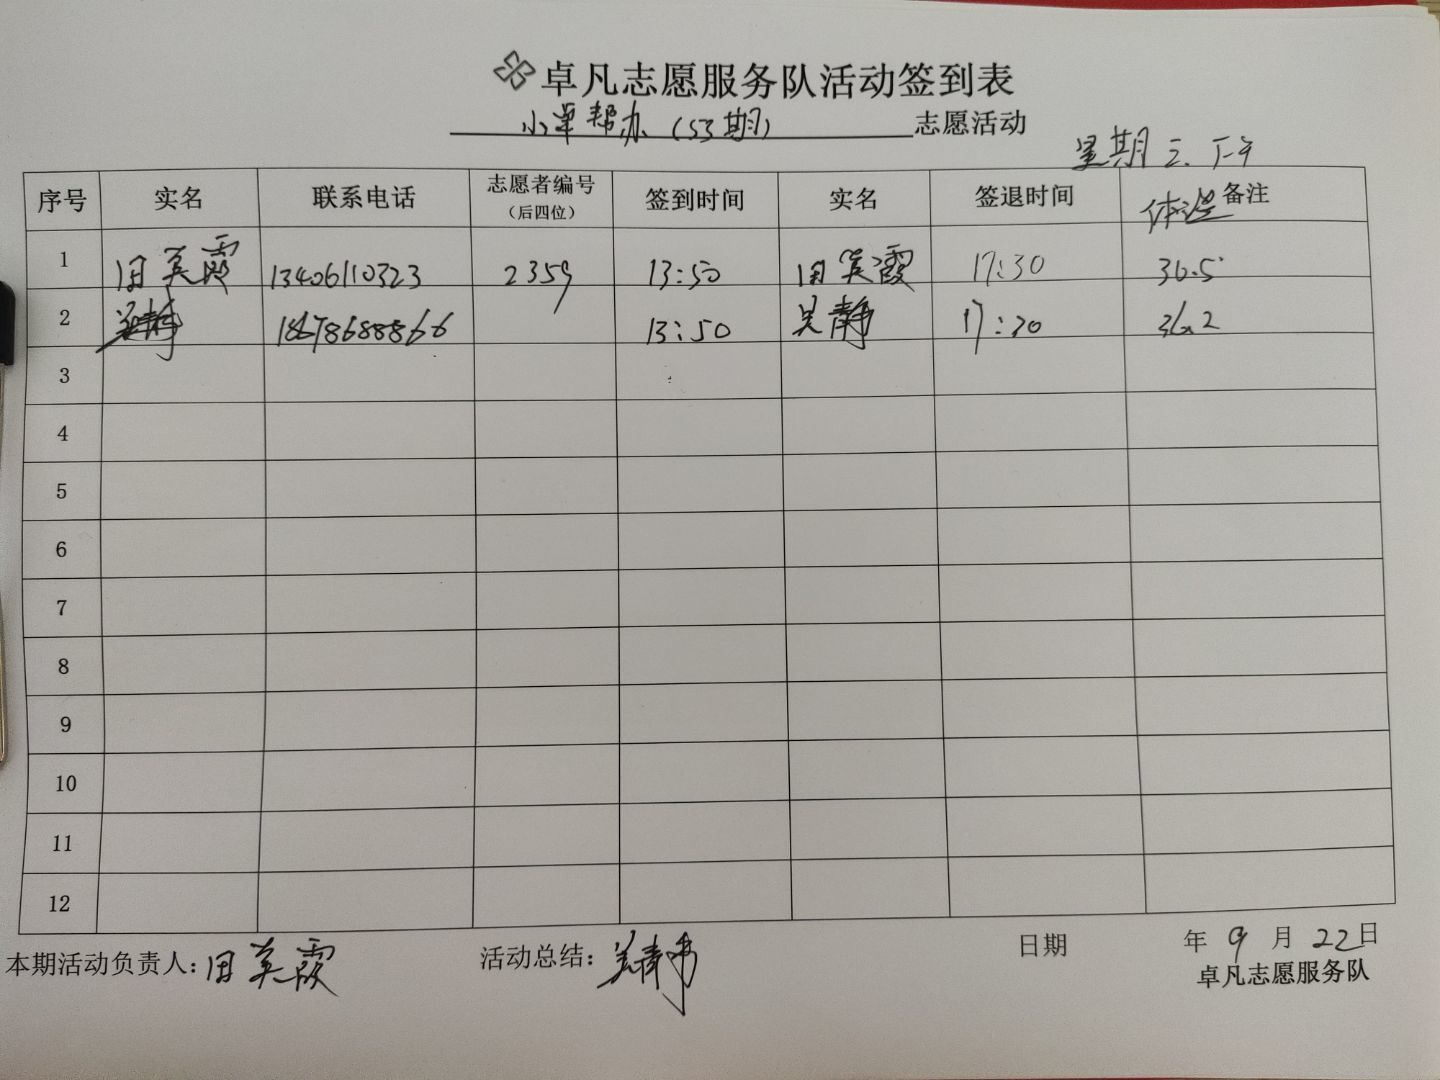 卓凡志愿服务队活动签到表
小单帮办（53期） 志愿活动
星期三. 下午
序号 实名 联系电话 志愿者编号（后四位） 签到时间 实名 签退时间 体温 备注
1 田英霞 13406110323 2359 13:50 田英霞 17:30 36.5
2 吴静 18678688866 13:50 吴静 17:30 36.2
3
4
5
6
7
8
9
10
11
12
本期活动负责人：田英霞 活动总结：吴静 日期 年 9 月 22 日
卓凡志愿服务队